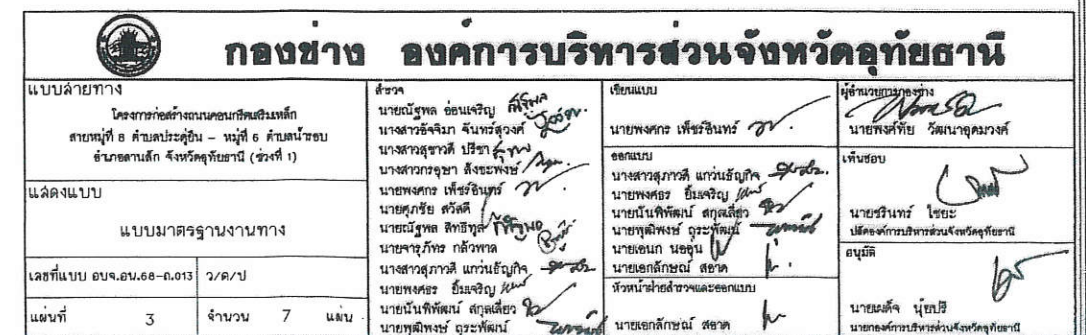 กองช่าง องค์การบริหารส่วนจังหวัดอุทัยธานี
แบบสายทาง
โครงการก่อสร้างถนนคอนกรีตเสริมเหล็ก
สายหมู่ที่ 8 ตำบลประดู่ยืน - หมู่ที่ 6 ตำบลน้ำรอบ
อำเภอลานสัก จังหวัดอุทัยธานี (ช่วงที่ 1)
แสดงแบบ
แบบมาตรฐานงานทาง
เลขที่แบบ อบจ.อน.68-ถ.013 ว/ด/ป
แผ่นที่ 3 จำนวน 7 แผ่น
สำรวจ
นายณัฐพล อ่อนเจริญ
นางสาวอัจจิมา จันทร์สุวงศ์
นางสาวสุชาวดี ปรีชา
นางสาวกรอุษา สังขะพงษ์
นายพงศกร เพ็ชร์อินทร์
นายศุภชัย สวัสดี
นายณัฐพล สิทธิทูล
นายจารุภัทร กล้วพาล
นางสาวสุภาวดี แกว่นธัญกิจ
นายพงศธร ยิ้มเจริญ
นายนันพิพัฒน์ สกุลเลี่ยว
นายพุฒิพงษ์ ถุระพัฒน์
เขียนแบบ
นายพงศกร เพ็ชร์อินทร์
ออกแบบ
นางสาวสุภาวดี แกว่นธัญกิจ
นายพงศธร ยิ้มเจริญ
นายนันพิพัฒน์ สกุลเลี่ยว
นายพุฒิพงษ์ ถุระพัฒน์
นายเอนก นออุ่น
นายเอกลักษณ์ สอาด
หัวหน้าฝ่ายสำรวจและออกแบบ
นายเอกลักษณ์ สอาด
ผู้อำนวยการกองช่าง
นายพงศ์ทัย วัฒนาอุดมวงศ์
เห็นชอบ
นายชรินทร์ ไชยะ
ปลัดองค์การบริหารส่วนจังหวัดอุทัยธานี
อนุมัติ
นายเผด็จ นุ้ยปรี
นายกองค์การบริหารส่วนจังหวัดอุทัยธานี